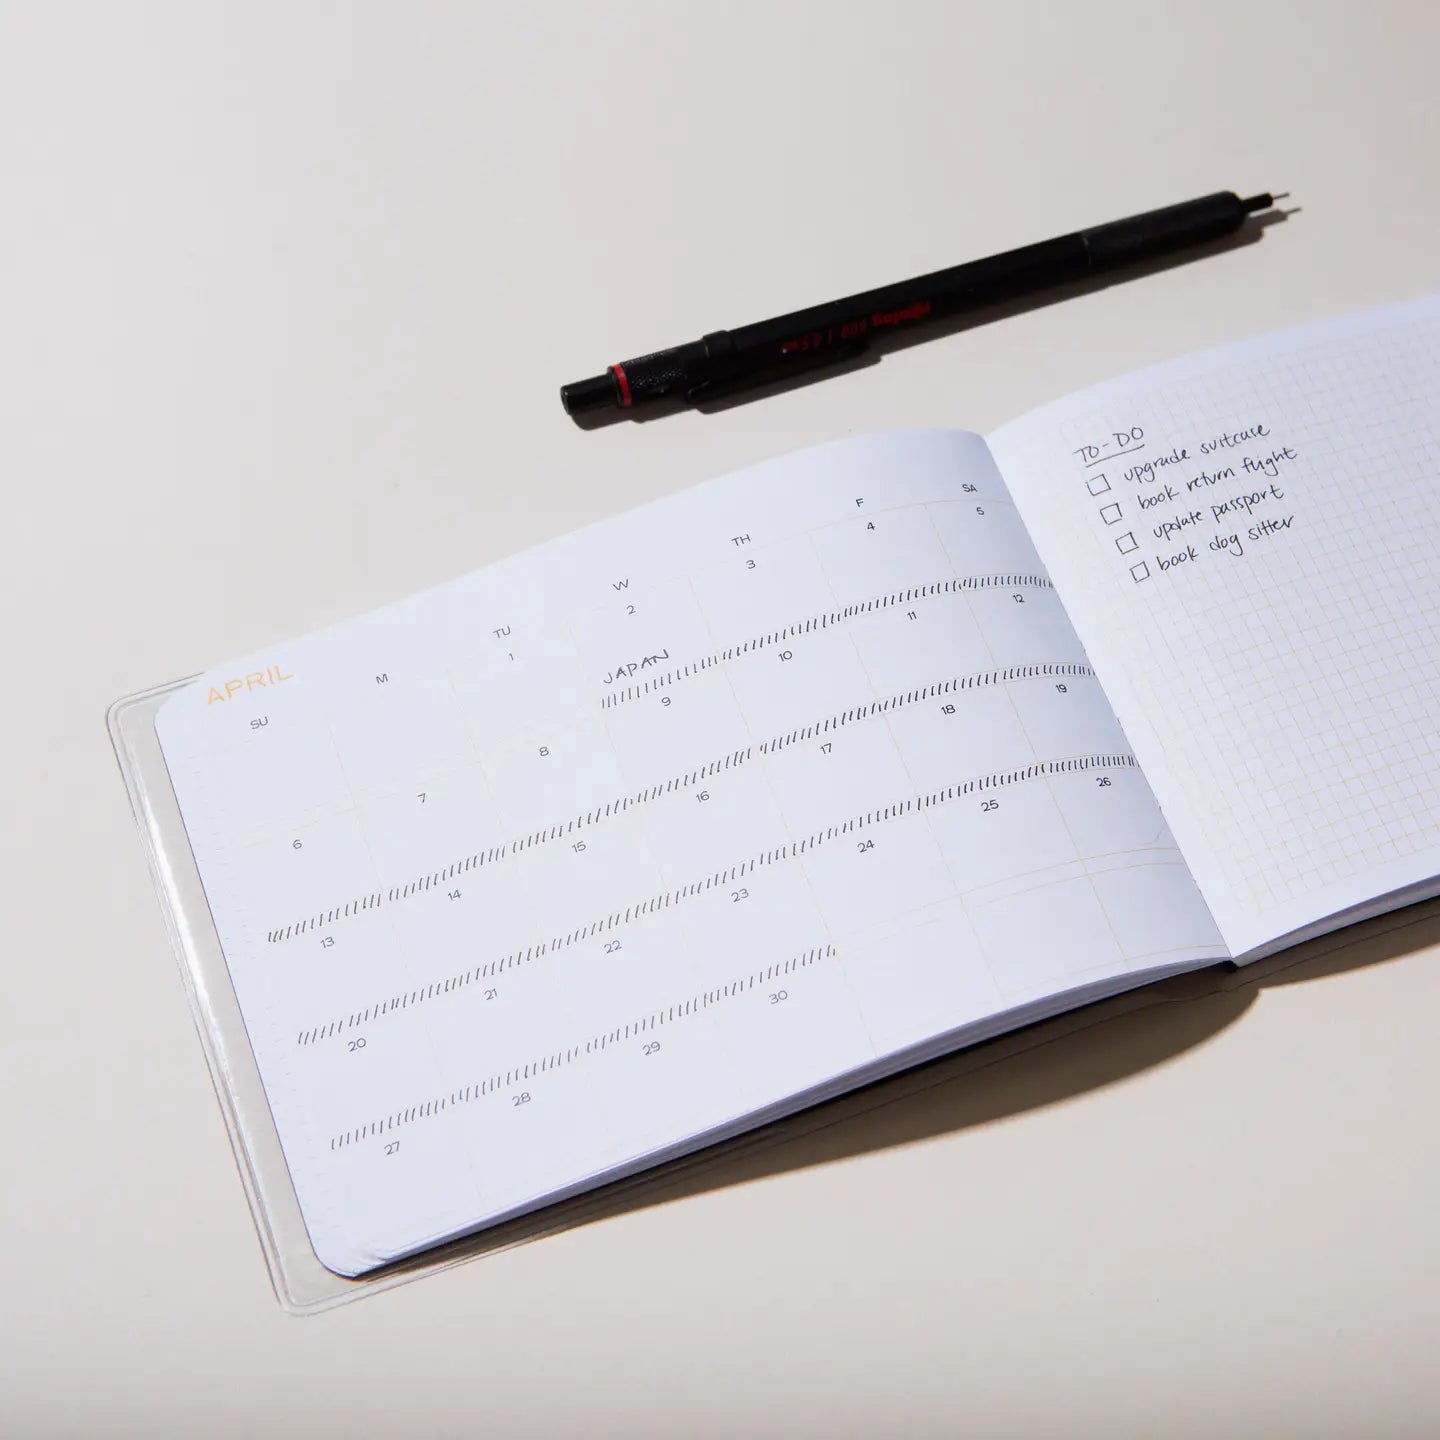 APRIL
SU M TU W TH F SA
1 2 3 4 5
JAPAN
6 7 8 9 10 11 12
13 14 15 16 17 18 19
20 21 22 23 24 25 26
27 28 29 30
TO-DO
upgrade suitcase
book return flight
update passport
book dog sitter
rotring 600 | 0.5